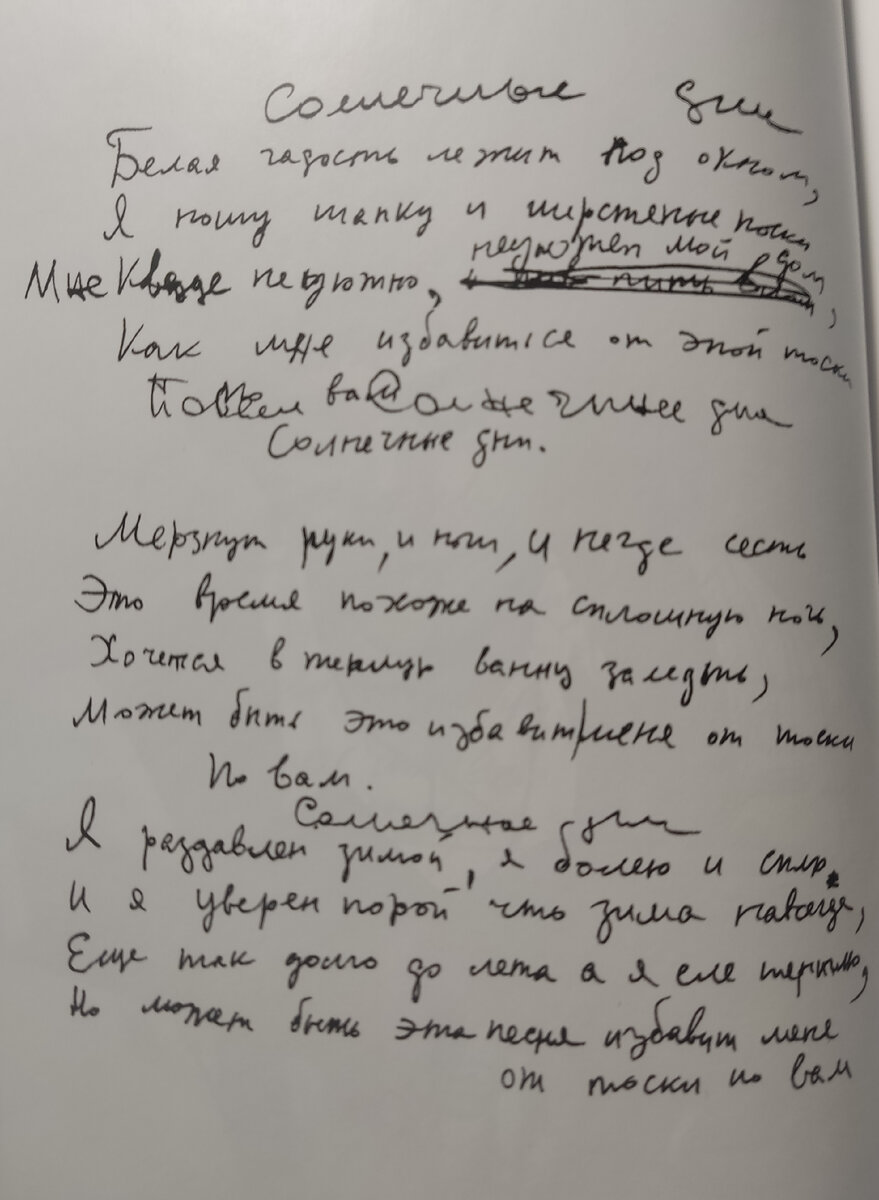 Солнечные дни
Белая гадость лежит под окном,
Я ношу шапку и шерстеные носки
неуютен мой дом,
Мне везде неуютно,
Как мне избавиться от этой тоски
По вам Солнечные дни
Солнечные дни.
Мерзнут руки, и ноги, и негде сесть
Это время похоже на сплошную ночь,
Хочется в теплую ванну залезть,
Может быть это избавит меня от тоски
По вам.
Солнечные дни
Я раздавлен зимой, я болею и сплю.
И я уверен порой что зима навсегда,
Еще так долго до лета а я еле терплю,
Но может быть эта песня избавит меня
от тоски по вам